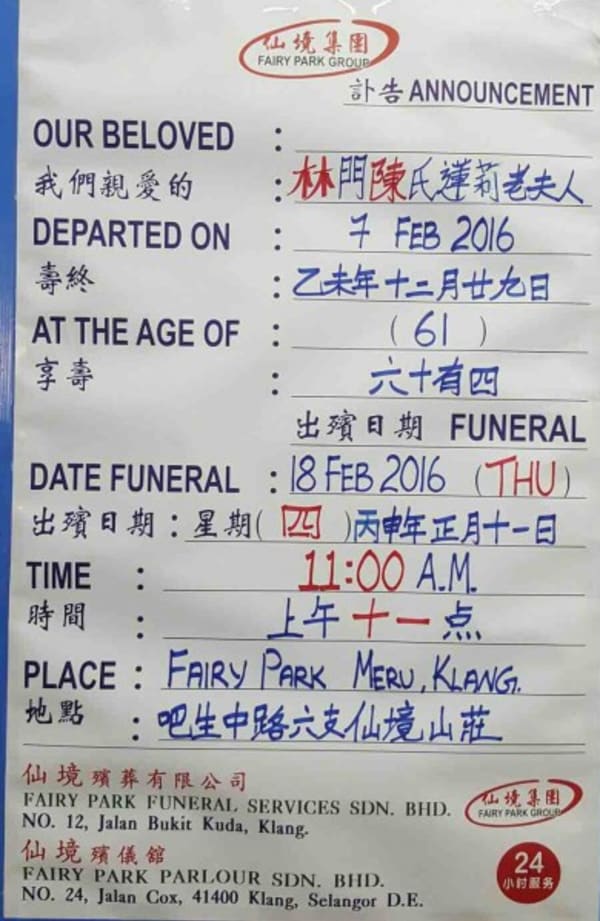 仙境集團
FAIRY PARK GROUP
訃告 ANNOUNCEMENT
OUR BELOVED :
我們親愛的 : 林門陳氏蓮莉老夫人
DEPARTED ON : 7 FEB 2016
壽終 : 乙未年十二月廿九日
AT THE AGE OF : (61)
享壽 : 六十有四
出殯日期 FUNERAL
DATE FUNERAL : 18 FEB 2016 (THU)
出殯日期 : 星期(四)丙申年正月十一日
TIME : 11:00 A.M.
時間 : 上午十一点
PLACE : FAIRY PARK MERU, KLANG.
地點 : 吧生中路六支仙境山莊
仙境殯葬有限公司
FAIRY PARK FUNERAL SERVICES SDN. BHD.
NO. 12, Jalan Bukit Kuda, Klang.
仙境殯儀舘
FAIRY PARK PARLOUR SDN. BHD.
NO. 24, Jalan Cox, 41400 Klang, Selangor D.E.
仙境集團
FAIRY PARK GROUP
24
小时服务